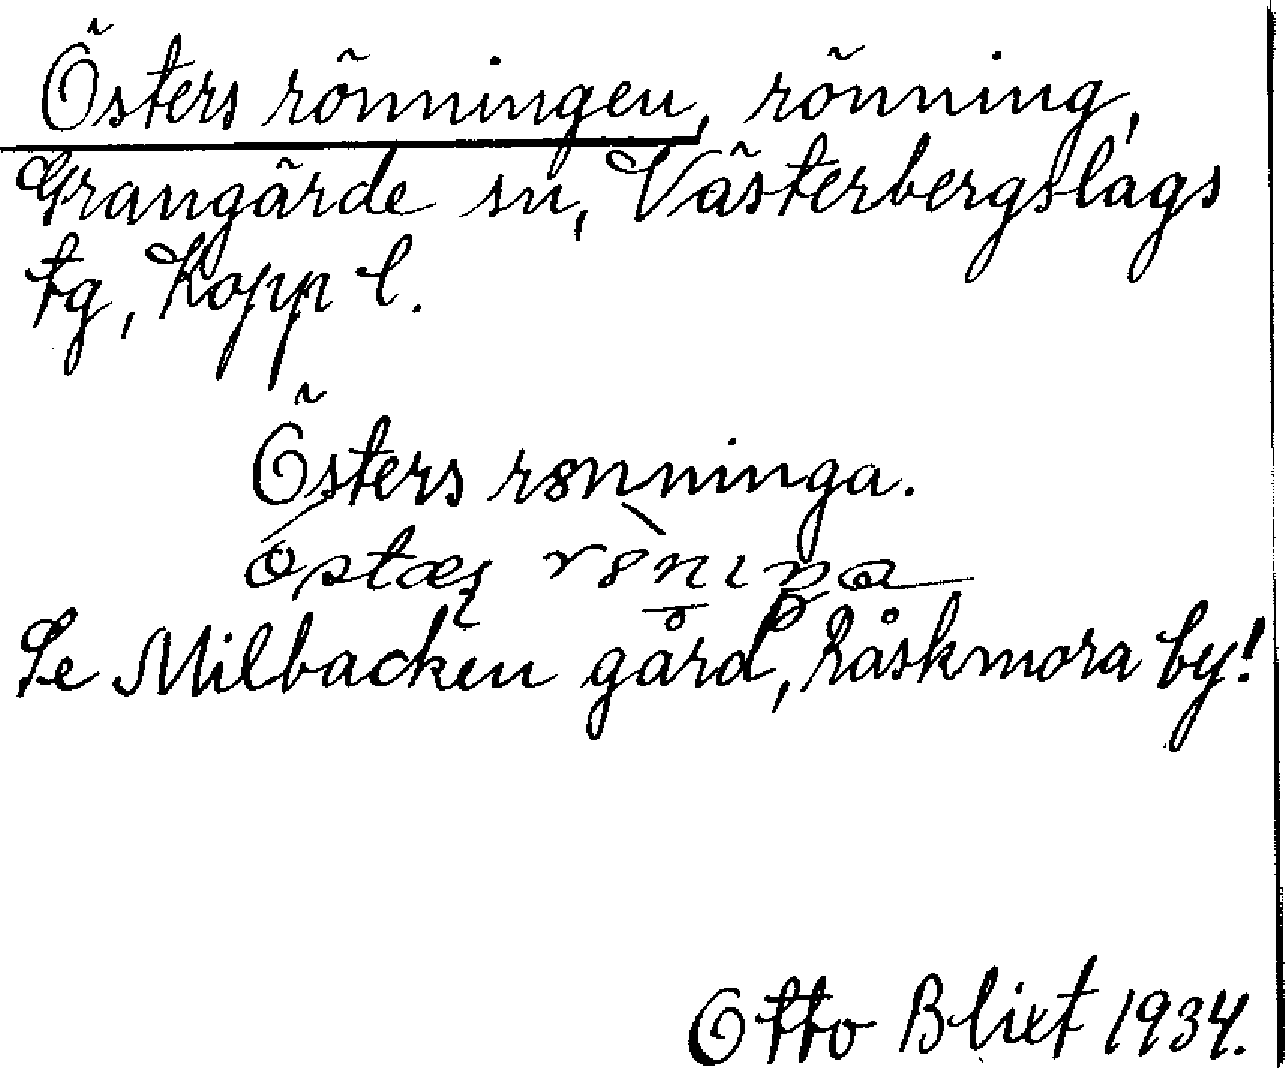 Östersrönningen, rönning,
Grangärde sn, Västerbergslags
tg, Kopp l.
Östers rönninga.
Se Milbacken gård, Råskmora by!
Otto Blixt 1934.